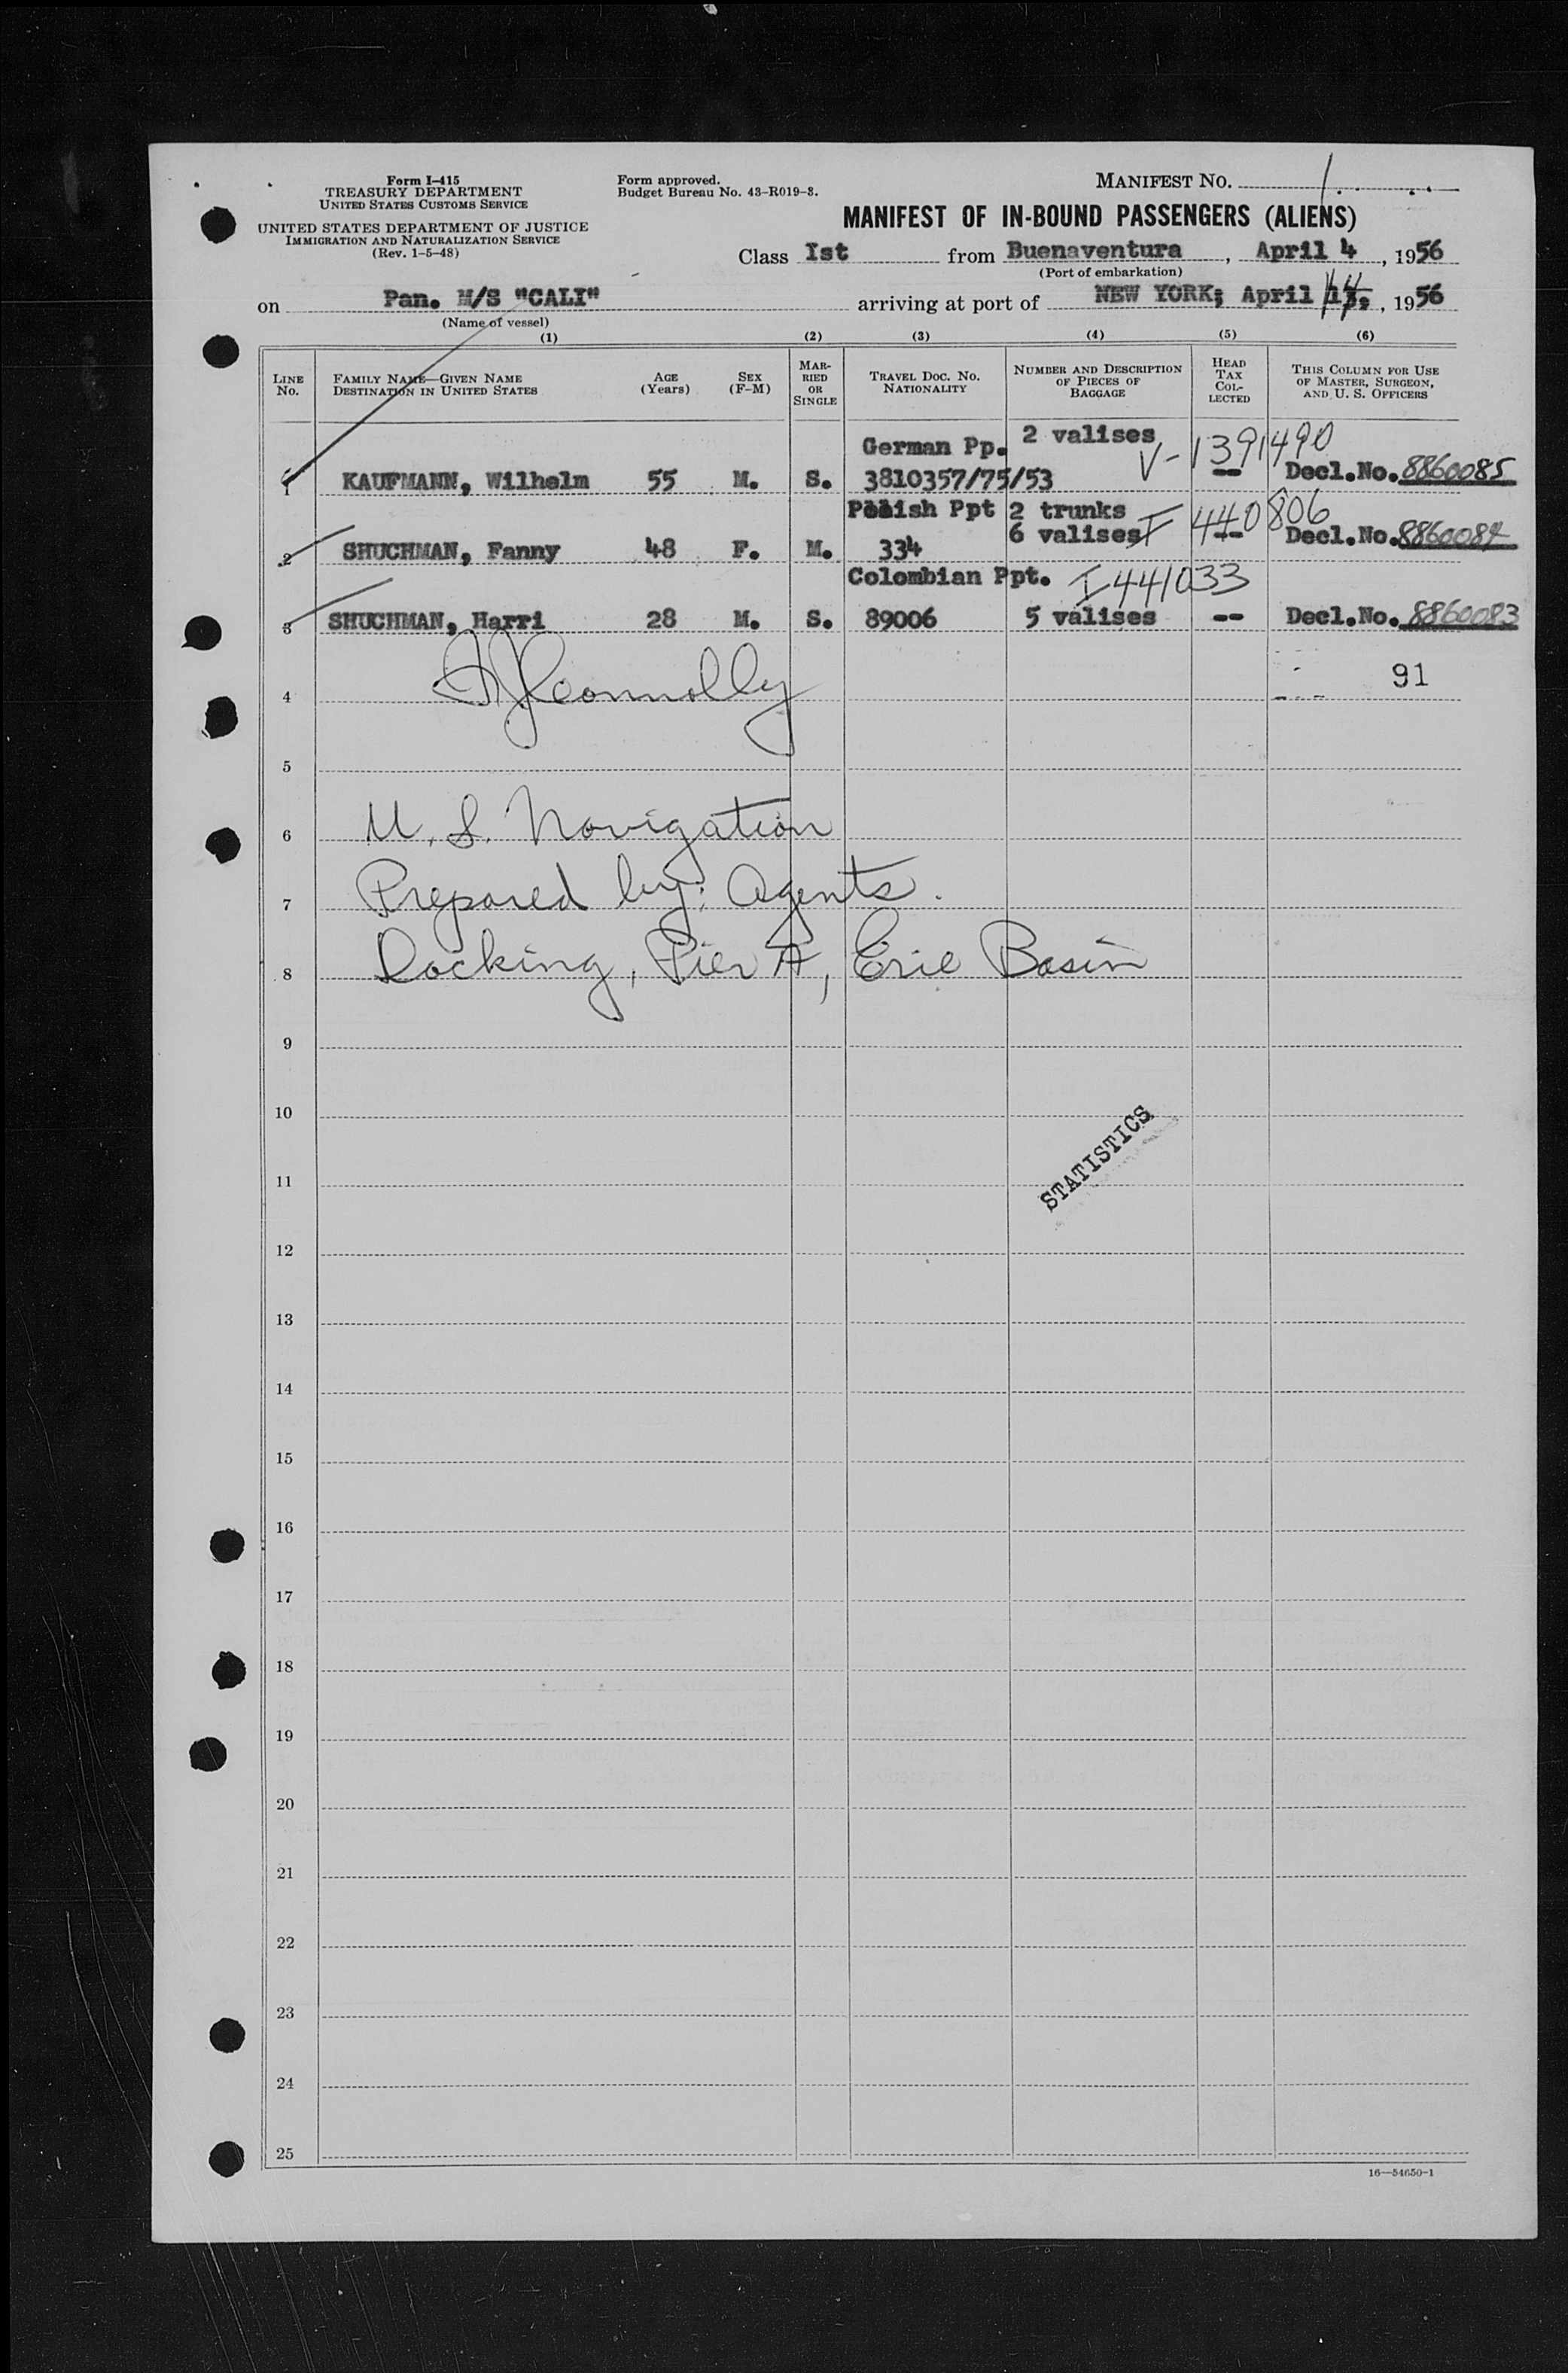 Form I-415
TREASURY DEPARTMENT
UNITED STATES CUSTOMS SERVICE
UNITED STATES DEPARTMENT OF JUSTICE
IMMIGRATION AND NATURALIZATION SERVICE
(Rev. 1-5-48)
Form approved.
Budget Bureau No. 43-R019-3.
MANIFEST NO. 1
MANIFEST OF IN-BOUND PASSENGERS (ALIENS)
Class Ist from Buenaventura, April 4, 1956
(Port of embarkation)
on Pan. M/S "CALI" arriving at port of NEW YORK; April 14, 1956
(Name of vessel)
(1) (2) (3) (4) (5) (6)
LINE No. FAMILY NAME—GIVEN NAME DESTINATION IN UNITED STATES AGE (Years) SEX (F-M) MARRIED OR SINGLE TRAVEL DOC. NO. NATIONALITY NUMBER AND DESCRIPTION OF PIECES OF BAGGAGE HEAD TAX COLLECTED THIS COLUMN FOR USE OF MASTER, SURGEON, AND U. S. OFFICERS
German Pp. 2 valises V-1391490
1 KAUFMANN, Wilhelm 55 M. S. 3810357/75/53 -- Decl.No. 8860085
Polish Ppt 2 trunks I 440806
2 SHUCHMAN, Fanny 48 F. M. 334 6 valises -- Decl.No. 8860084
Colombian Ppt. I 441033
3 SHUCHMAN, Harri 28 M. S. 89006 5 valises -- Decl.No. 8860083
4 Connolly 91
5
6 U. S. Navigation
7 Prepared by: Agents.
8 Docking, Pier A, Erie Basin
9
10
STATISTICS
11
12
13
14
15
16
17
18
19
20
21
22
23
24
25
16—54650-1